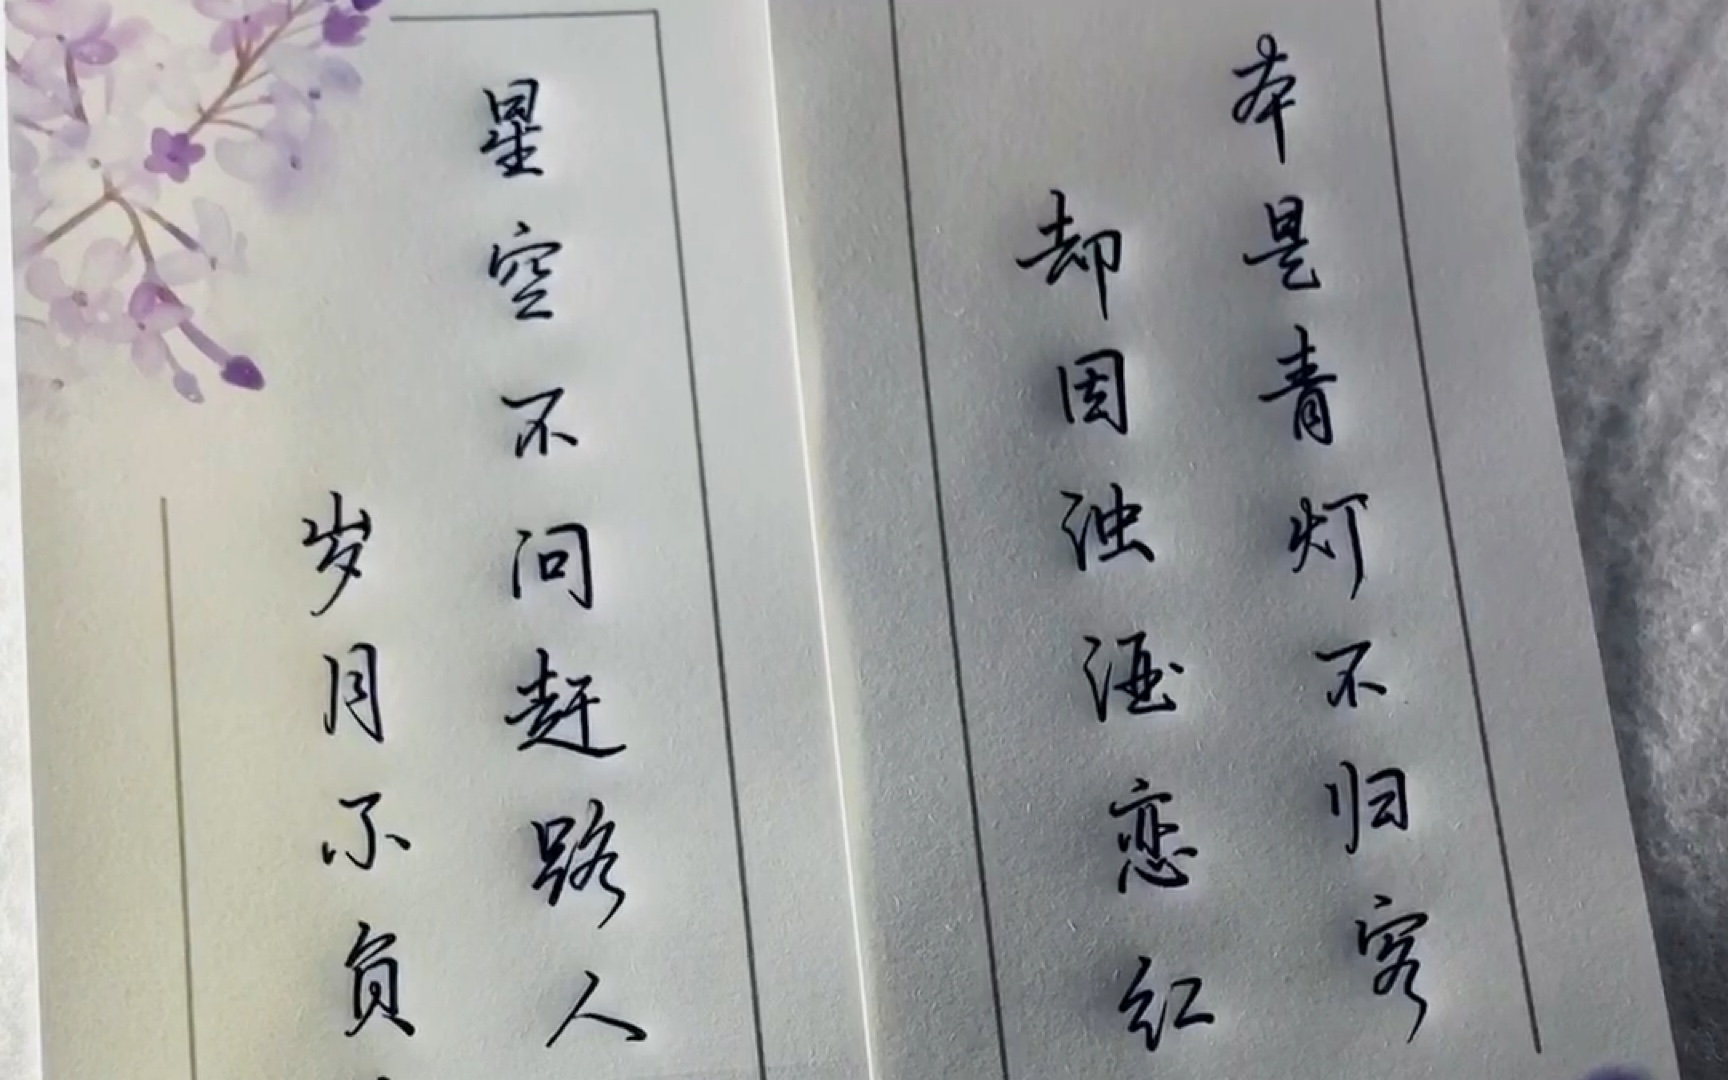 本是青灯不归客
却因浊酒恋红
星空不问赶路人
岁月不负